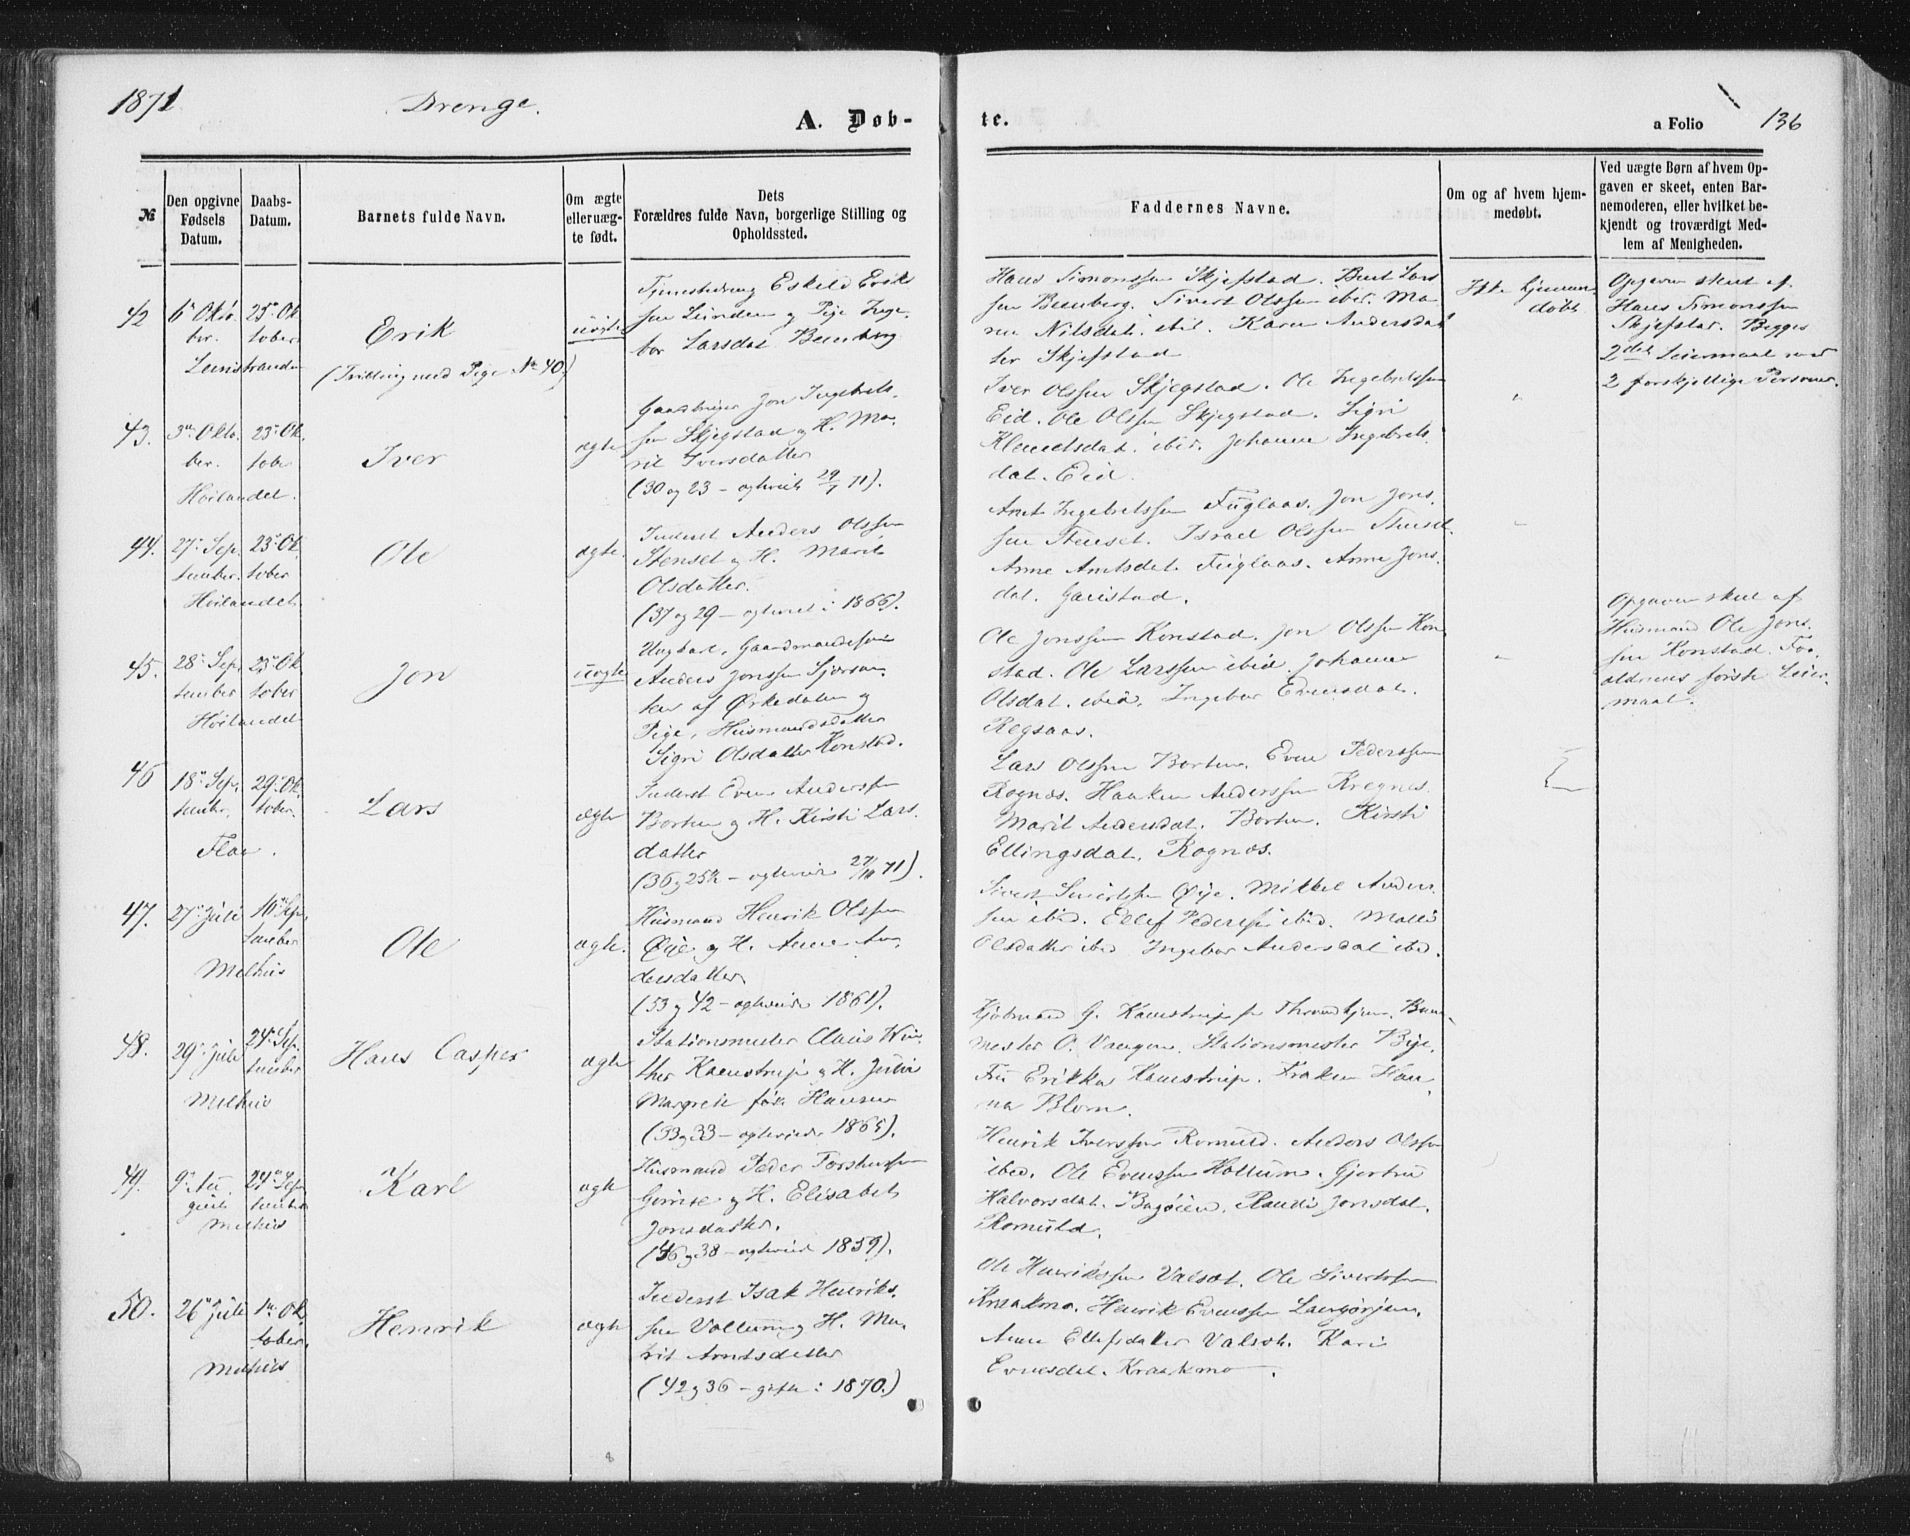 1871
Drenge.
A. Døb-
te.
a Folio
136
№
Den opgivne Fødsels Datum.
Daabs-Datum.
Barnets fulde Navn.
Om ægte eller uæg-te født.
Dets Forældres fulde Navn, borgerlige Stilling og Opholdssted.
Faddernes Navne.
Om og af hvem hjem-medøbt.
Ved uægte Børn af hvem Op-gaven er skeet, enten Bar-nemoderen, eller hvilket be-kjendt og troværdigt Med-lem af Menigheden.
42
6te Okto
ber.
25de Ok
tober
Leinstranden
Erik
(Tvilling med Pige No 40)
uægte
Tjenestedreng Eskild Eriks
sen Leinden og Pige Inge
bor Larsdat Benberg
Hans Simonssen Skjefstad. Bent Lars
sen Benberg. Sivert Olssen ibid. Ma
ren Nilsdat. ibid. Karen Andersdat
ter Skjefstad
Ikke hjemme
døbt
Opgaven skeet af
Hans Simonssen
Skjefstad. Begges
2det Leiermaal med
2 forskjellige Personer.
43.
3die Okto.
ber.
23de Ok.
tober
Hølandet.
Iver
ægte
Gaardbruger Jon Ingebrets.
sen Skjegstad og H. Ma.
rit Iversdatter
(30 og 23 - egteviet 29/7 71).
Iver Olssen Skjegstad. Ole Ingebretssen
Eid. Ole Olssen Skjegstad. Sigri
Klemetsdat. ibid. Johanne Ingebrets.
dat. Eid.
"
44.
27de Sep.
tember.
23de Ok.
tober
Hølandet
Ole
ægte.
Inderst Anders Olssen
Stenset og H. Marit
Olsdatter.
(37 og 29 - egteviet i 1866).
Arnt Ingebretssen Fuglaas. Jon Jons.
sen Stenset. Israel Olssen Stenset.
Anne Arntsdat. Fuglaas. Anne Jons.
dat. Gaustad.
"
45.
28de Sep.
tember
23de Ok
tober
Hølandet
Jon
uægte
Ungkarl, Gaardmandssøn
Anders Jonssen
af Ørkedalen og
Pige, Husmandsdatter
Sigri Olsdatter Konstad.
Ole Jonssen Konstad. Jon Olssen Kon
stad. Ole Larssen ibid. Johanne
Olsdat. ibid. Ingebor Evensdat.
Regsaas.
"
Opgaven skeet af
Husmand Ole Jons.
sen Konstad. For
ældrenes første Leier
maal.
46
18de Sep.
tember.
29de Ok.
tober.
Flaa.
Lars
ægte
Inderst Even Anderssen
Borten og H. Kirsti Lars.
datter
(36 og 25½ - egteviede 27/10 71).
Lars Olssen Borten. Even Pederssen
Rognes. Haaken Anderssen Kregnes.
Marit Andersdat. Borten. Kirsti
Ellingsdat. Rognes.
47.
27de Juli
10de Sep.
tember
Melhus
Ole
ægte.
Husmand Henrik Olssen
Øye og H. Anne An.
dersdatter
(53 og 42 - egteviede 1861).
Sivert Sivertssen Øye. Mikkel Anders
sen ibid. Ellef Pederssen ibid. Malli
Olsdatter ibid Ingebor Andersdat ibid.
48.
29de Juli
24de Sep.
tember
Melhus
Hans Casper
ægte
Stationsmester Claus Win
ther Kaurstrup og H. Julie
Margrete født Hansen
(33 og 33 - egteviede 1865).
Kjøbmand G. Kaurstrup fr Throndhjem. Bane
mester O. Vangen. Stationsmester Bye.
Fru Erikka Kaurstrup. Frøken Han
na Blom.
49.
9de Au.
gust
24de Sep
tember
Melhus
Karl
ægte
Husmand Peder Torstenssen
Gimse og H. Elisabet
Jonsdatter.
(46 og 38 - egteviede 1859).
Henrik Iverssen Romuld. Anders Olssen
ibid. Ole Evenssen Hollum. Gjertru
Halvorsdat. Bagøien. Randi Jonsdat.
Romuld.
50.
26de Juli
1ste Ok.
tober.
Melhus
Henrik
ægte
Inderst Isak Henriks.
sen Vollum og H. Ma.
rit Arntsdatter
(42 og 36 - gifte i 1870.)
Ole Henrikssen Valset. Ole Sivertssen
Kraakmo. Henrik Evenssen Laugørjen.
Anne Ellefsdatter Valset. Kari
Evensdat. Kraakmo.
8